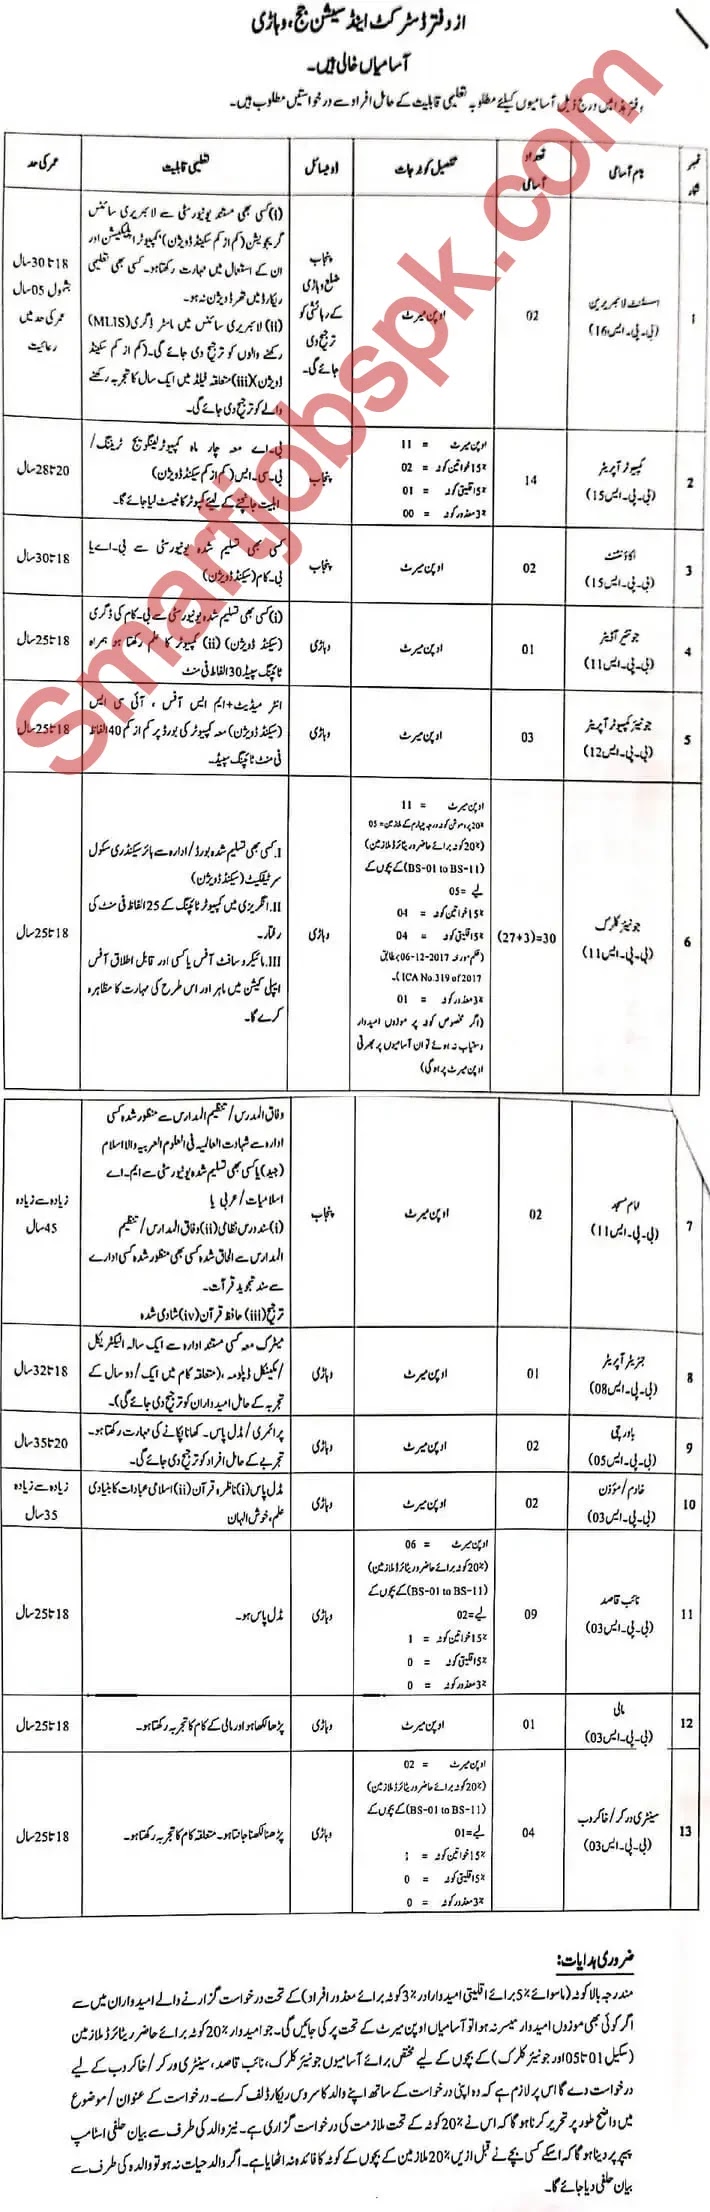 از دفتر ڈسٹرکٹ اینڈ سیشن جج، وہاڑی
آسامیاں خالی ہیں۔
دفتر ہذا میں درج ذیل آسامیوں کیلئے مطلوبہ تعلیمی قابلیت کے حامل افراد سے درخواستیں مطلوب ہیں۔
نمبر شمار
نام آسامی
تعداد آسامی
تفصیل کوٹہ جات
ڈومیسائل
تعلیمی قابلیت
عمر کی حد
1
اسسٹنٹ لائبریرین
(بی۔پی۔ایس16)
02
اوپن میرٹ
پنجاب
ضلع وہاڑی
کے رہائشی کو
ترجیح دی
جائے گی۔
(i) کسی بھی مستند یونیورسٹی سے لائبریری سائنس
گریجویشن (کم از کم سیکنڈ ڈویژن) کمپیوٹر اپلیکیشن اور
ان کے استعمال میں مہارت رکھتا ہو۔ کسی بھی تعلیمی
ریکارڈ میں تھرڈ ڈویژن نہ ہو۔
(ii) لائبریری سائنس میں ماسٹر ڈگری (MLIS)
رکھنے والوں کو ترجیح دی جائے گی۔ (کم از کم سیکنڈ
ڈویژن) (iii) متعلقہ فیلڈ میں ایک سال کا تجربہ رکھنے
والے کو ترجیح دی جائے گی۔
18 تا 30 سال
بشمول 05 سال
عمر کی حد میں
رعایت
2
کمپیوٹر آپریٹر
(بی۔پی۔ایس15)
14
اوپن میرٹ = 11
15% خواتین کوٹہ = 02
5% اقلیتی کوٹہ = 01
3% معذور کوٹہ = 00
پنجاب
بی۔اے معہ چار ماہ کمپیوٹر لینگویج ٹریننگ/
بی۔سی۔ایس (کم از کم سیکنڈ ڈویژن)
اہلیت جانچنے کے لیئے کمپیوٹر کا ٹیسٹ لیا جائے گا۔
20 تا 28 سال
3
اکاؤنٹنٹ
(بی۔پی۔ایس15)
02
اوپن میرٹ
پنجاب
کسی بھی تسلیم شدہ یونیورسٹی سے بی۔اے یا
بی۔کام (سیکنڈ ڈویژن)
18 تا 30 سال
4
جونیئر آڈیٹر
(بی۔پی۔ایس11)
01
اوپن میرٹ
وہاڑی
(i) کسی بھی تسلیم شدہ یونیورسٹی سے بی۔کام کی ڈگری
(سیکنڈ ڈویژن) (ii) کمپیوٹر کا علم رکھتا ہو ہمراہ
ٹائپنگ سپیڈ 30 الفاظ فی منٹ
18 تا 25 سال
5
جونیئر کمپیوٹر آپریٹر
(بی۔پی۔ایس12)
03
اوپن میرٹ
وہاڑی
انٹر میڈیٹ + ایم ایس آفس ، آئی سی ایس
(سیکنڈ ڈویژن) معہ کمپیوٹر کی بورڈ پر کم از کم 40 الفاظ
فی منٹ ٹائپنگ سپیڈ۔
18 تا 25 سال
6
جونیئر کلرک
(بی۔پی۔ایس11)
(27+3)=30
اوپن میرٹ = 11
20% پروموشن کوٹہ درجہ چہارم کے ملازمین = 05
(20% کوٹہ برائے حاضر و ریٹائرڈ ملازمین
(BS-01 to BS-11) کے بچوں کے
لیے = 05
15% خواتین کوٹہ = 04
5% اقلیتی کوٹہ = 04
(حکم مورخہ 06-12-2017 بمطابق
ICA No.319 of 2017)۔
3% معذور کوٹہ = 01
(اگر مخصوص کوٹہ پر موزوں امیدوار
دستیاب نہ ہوئے تو ان آسامیوں پر بھرتی
اوپن میرٹ پر ہو گی)
وہاڑی
I. کسی بھی تسلیم شدہ بورڈ/ادارہ سے ہائر سیکنڈری سکول
سرٹیفکیٹ (سیکنڈ ڈویژن)
II. انگریزی میں کمپیوٹر ٹائپنگ کے 25 الفاظ فی منٹ کی
رفتار۔
III. مائیکروسافٹ آفس یا کسی اور قابل اطلاق آفس
ایپلی کیشن میں ماہر اور اس طرح کی مہارت کا مظاہرہ
کرے گا۔
18 تا 25 سال
7
امام مسجد
(بی۔پی۔ایس11)
02
اوپن میرٹ
پنجاب
وفاق المدارس/تنظیم المدارس سے منظور شدہ کسی
ادارہ سے شہادت العالمیہ فی العلوم العربیہ والاسلام
(جید) یا کسی بھی تسلیم شدہ یونیورسٹی سے ایم۔اے
اسلامیات/عربی یا
(i) سند درس نظامی (ii) وفاق المدارس/تنظیم
المدارس سے الحاق شدہ کسی بھی منظور شدہ کسی ادارے
سے سند تجوید قرآت۔
ترجیح (iii) حافظ قرآن (iv) شادی شدہ
زیادہ سے زیادہ
45 سال
8
جنریٹر آپریٹر
(بی۔پی۔ایس08)
01
اوپن میرٹ
وہاڑی
میٹرک معہ کسی مستند ادارہ سے ایک سالہ الیکٹریکل
/مکینکل ڈپلومہ، (متعلقہ کام میں ایک/دو سال کے
تجربہ کے حامل امیدواران کو ترجیح دی جائے گی)۔
18 تا 32 سال
9
باورچی
(بی۔پی۔ایس05)
02
اوپن میرٹ
وہاڑی
پرائمری/مڈل پاس۔ کھانا پکانے کی مہارت رکھتا ہو۔
تجربے کے حامل افراد کو ترجیح دی جائے گی۔
20 تا 35 سال
10
خادم/مؤذن
(بی۔پی۔ایس03)
02
اوپن میرٹ
وہاڑی
مڈل پاس (i) ناظرہ قرآن (ii) اسلامی عبادات کا بنیادی
علم، خوش الہان
زیادہ سے زیادہ
35 سال
11
نائب قاصد
(بی۔پی۔ایس03)
09
اوپن میرٹ = 06
(20% کوٹہ برائے حاضر و ریٹائرڈ ملازمین
(BS-01 to BS-11) کے بچوں کے
لیے = 02
15% خواتین کوٹہ = 1
5% اقلیتی کوٹہ = 0
3% معذور کوٹہ = 0
وہاڑی
مڈل پاس ہو۔
18 تا 25 سال
12
مالی
(بی۔پی۔ایس03)
01
اوپن میرٹ
وہاڑی
پڑھا لکھا ہو اور مالی کے کام کا تجربہ رکھتا ہو۔
18 تا 25 سال
13
سینٹری ورکر/خاکروب
(بی۔پی۔ایس03)
04
اوپن میرٹ = 02
(20% کوٹہ برائے حاضر و ریٹائرڈ ملازمین
(BS-01 to BS-11) کے بچوں کے
لیے = 01
15% خواتین کوٹہ = 1
5% اقلیتی کوٹہ = 0
3% معذور کوٹہ = 0
وہاڑی
پڑھنا لکھنا جانتا ہو۔ متعلقہ کام کا تجربہ رکھتا ہو۔
18 تا 25 سال
ضروری ہدایات:
مندرجہ بالا کوٹہ (ماسوائے 5% برائے اقلیتی امیدوار اور 3% کوٹہ برائے معذور افراد) کے تحت درخواست گزارنے والے امیدواران میں سے
اگر کوئی بھی موزوں امیدوار میسر نہ ہوا تو آسامیاں اوپن میرٹ کے تحت پر کی جائیں گی۔ جو امیدوار 20% کوٹہ برائے حاضر ریٹائرڈ ملازمین
(سکیل 01 تا 05 اور جونیئر کلرک) کے بچوں کے لیے مختص برائے آسامیوں جونیئر کلرک، نائب قاصد، سینٹری ورکر/خاکروب کے لیے
درخواست دے گا اس پر لازم ہے کہ وہ اپنی درخواست کے ساتھ اپنے والد کا سروس ریکارڈ لف کرے۔ درخواست کے عنوان/موضوع
میں واضح طور پر تحریر کرنا ہوگا کہ اس نے 20% کوٹہ کے تحت ملازمت کی درخواست گزاری ہے۔ نیز والد کی طرف سے بیان حلفی اسٹامپ
پیپر پر دینا ہوگا کہ اسکے کسی بچے نے قبل ازیں 20% ملازمین کے بچوں کے کوٹہ کا فائدہ نہ اٹھایا ہے۔ اگر والد حیات نہ ہو تو والدہ کی طرف سے
بیان حلفی دیا جائے گا۔
Smartjobspk.com